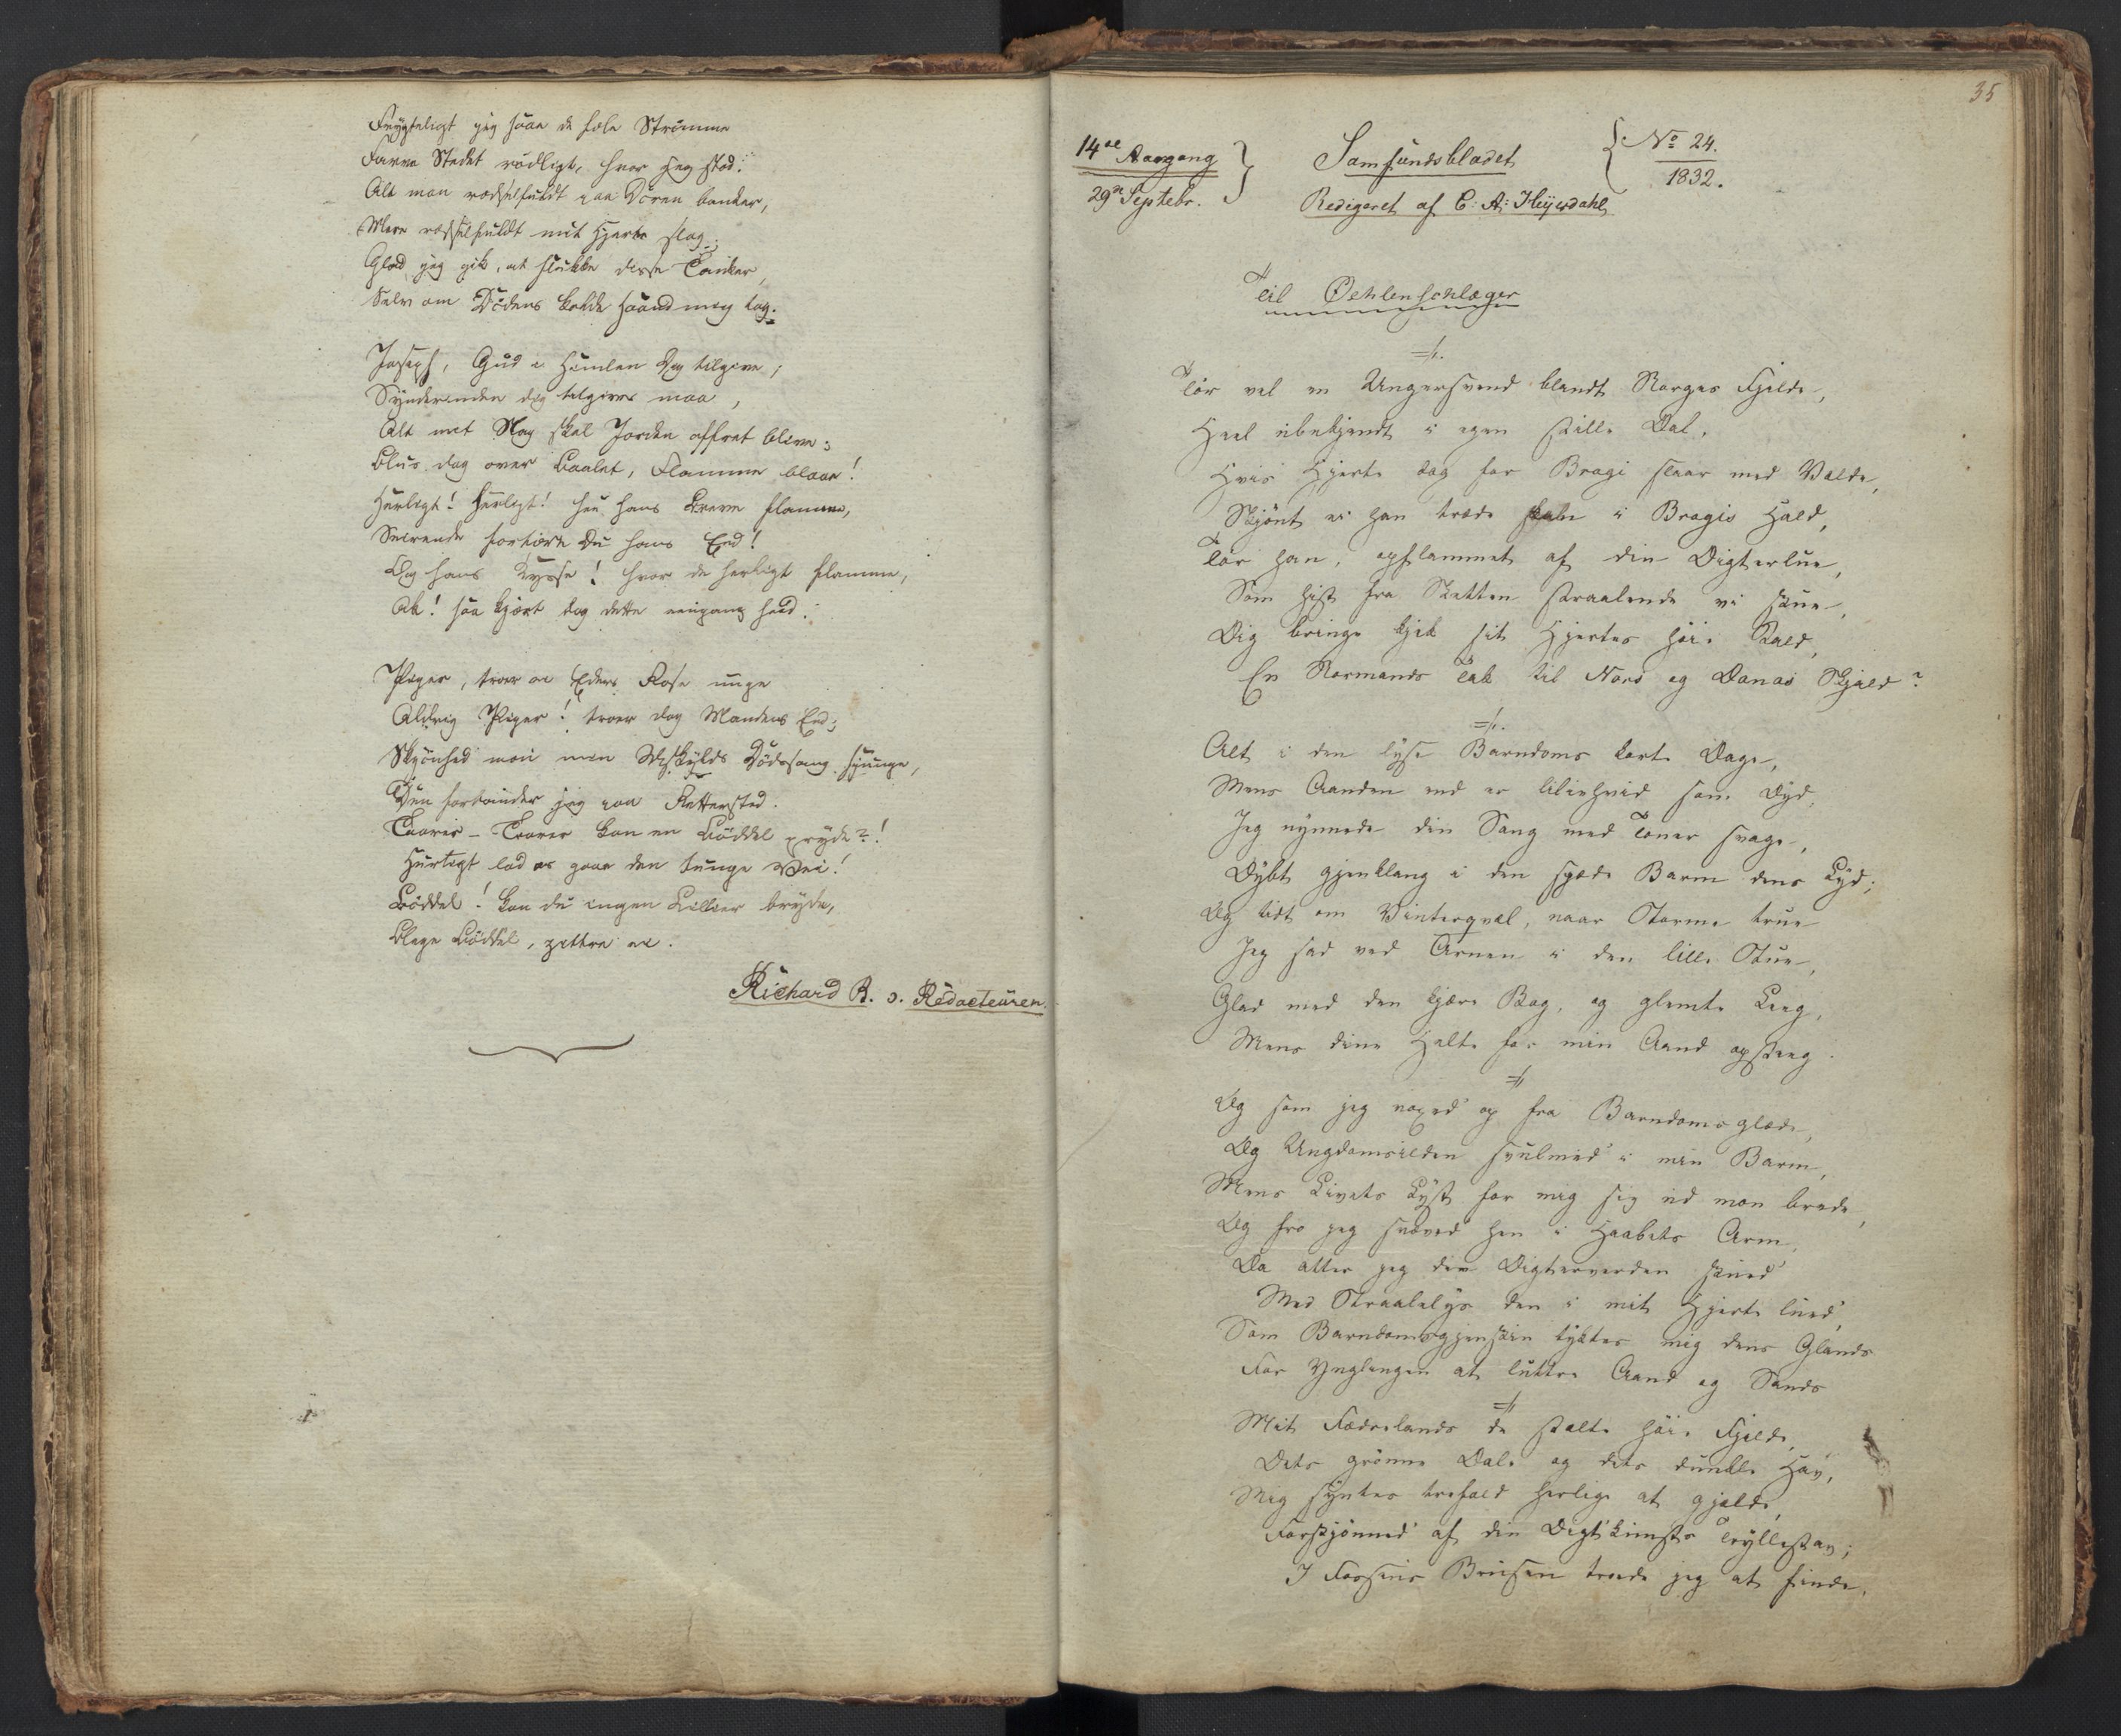 Frygteligt jeg saae de fæle Strömme
Farve Stedet rödligt, hvor jeg stod.
Alt man rædselfuldt paa Dören banker,
Mere rædselfuldt mit Hjerte slog;
Glad jeg gik, at slukke disse Tanker,
Selv om Dödens kolde Haand mig tog.
Joseph, Gud i Himlen Dig tilgive;
Synderinden dig tilgives maa,
Alt mit Nag skal Jorden offret blive;
Blus dog over Baalet, Flamme blaae!
Hurligt! Hurligt! see hans Breve flamme,
Seirende fortære Du hans Eed!
Og hans Kysse! hvor de herligt flamme,
Ak! saa kjært dog dette eengang heed.
Piger, troer ei Eders Rose unge
Aldrig Piger! troer dog Mandens Eed;
Skjönhed mon min Uskylds Dödssang sjunge,
Den forbander jeg paa Rettersted.
Taarer – Taarer kan en Böddel pryde?!
Hurtigt lad os gaae den tunge Vei!
Böddel! kan du ingen Lillier bryde,
Blege Böddel, zittre ei.
Richard B. s. Redacteuren.
35
14de Aargang
29de Septebr.
Samfundsbladet
Redigeret af C: A: Heyerdahl
No 24.
1832.
Til Oehlenschlæger
Tör vel en Ungersvend blandt Norges Fjelde,
Heel ubekjendt i egen stille Dal,
Hvis Hjerte dog for Bragi slaaer med Vælde,
Skjönt ei han træde i Bragis Hald,
Tör han, opflammet af din Digterlue,
Som hist fra Sletten straalende vi skue,
Dig bringe kjek sit Hjertes höie Kald,
En Normands Tak til Nors og Danas Skjald?
Alt i den lyse Barndoms korte Dage,
Mens Aanden end er lilienhvid som Dyd,
Jeg nynnede din Sang med Toner svage,
Dybt gjenklang i den spæde Barm dens Lyd;
Og tidt en Vinterqvæl, naar Storme true
Jeg sad ved Arnen i den lille Stue,
Glad med den kjære Bog, og glemte Leeg,
Mens dine Helte for min Aand opsteeg.
Og som jeg voxed' op fra Barndoms glæde,
Og Ungdomsilden svulmed' i min Barm,
Mens Livets Lyst for mig sig ud mon brede,
Og fro jeg svæved hen i Haabets Arm,
Da atter jeg den Digterverden skued'
Med Straalelys den i mit Hjerte lued',
Som Barndomsgjenskin tyktes mig dens Glands
For Ynglingen at luttre Aand og Sands
Mit Fædrelands de stolte höie Fjelde,
Dets grönne Dale og dets dunkle Hav,
Mig syntes trefold herlige at gjælde,
Forskjönned' af din Digtkunsts Tryllestav;
I Fossens Brusen troede jeg at finde,